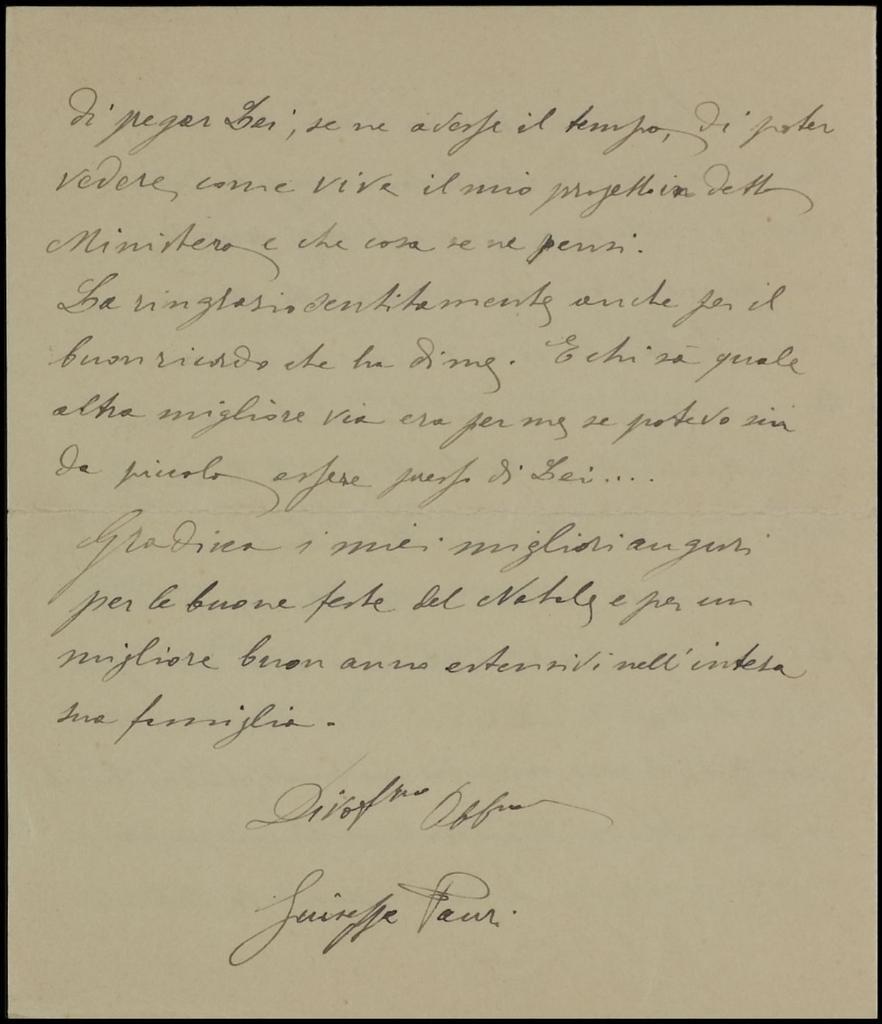 di pegar Lei, se ne avesse il tempo, di poter
vedere come vive il mio progetto in detto
Ministero e che cosa se ne pensi.
La ringrazio sentitamente anche per il
buon ricordo che ha di me. E chi sà quale
altra migliore via era per me se potevo sin
da piccolo essere presso di Lei....
Gradisca i miei migliori auguri
per le buone feste del Natale e per un
migliore buon anno estensivi nell'intera
sua famiglia.
Divossmo Obbmo
Giuseppe Pauri